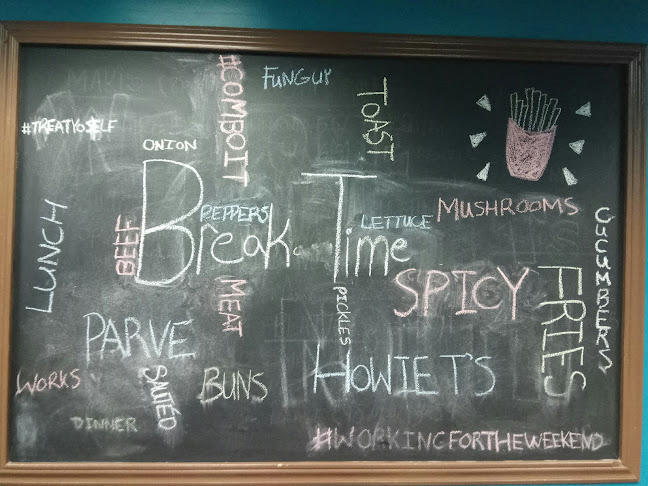 #COMBOIT
FUNGUY
TOAST
#TREATYOSELF
ONION
Break Time
PEPPERS
LETTUCE
MUSHROOMS
CUCUMBERS
LUNCH
BEEF
MEAT
PICKLES
SPICY
FRIES
PARVE
HOWIET'S
WORKS
SAUTÉD
BUNS
DINNER
#WORKINGFORTHEWEEKEND